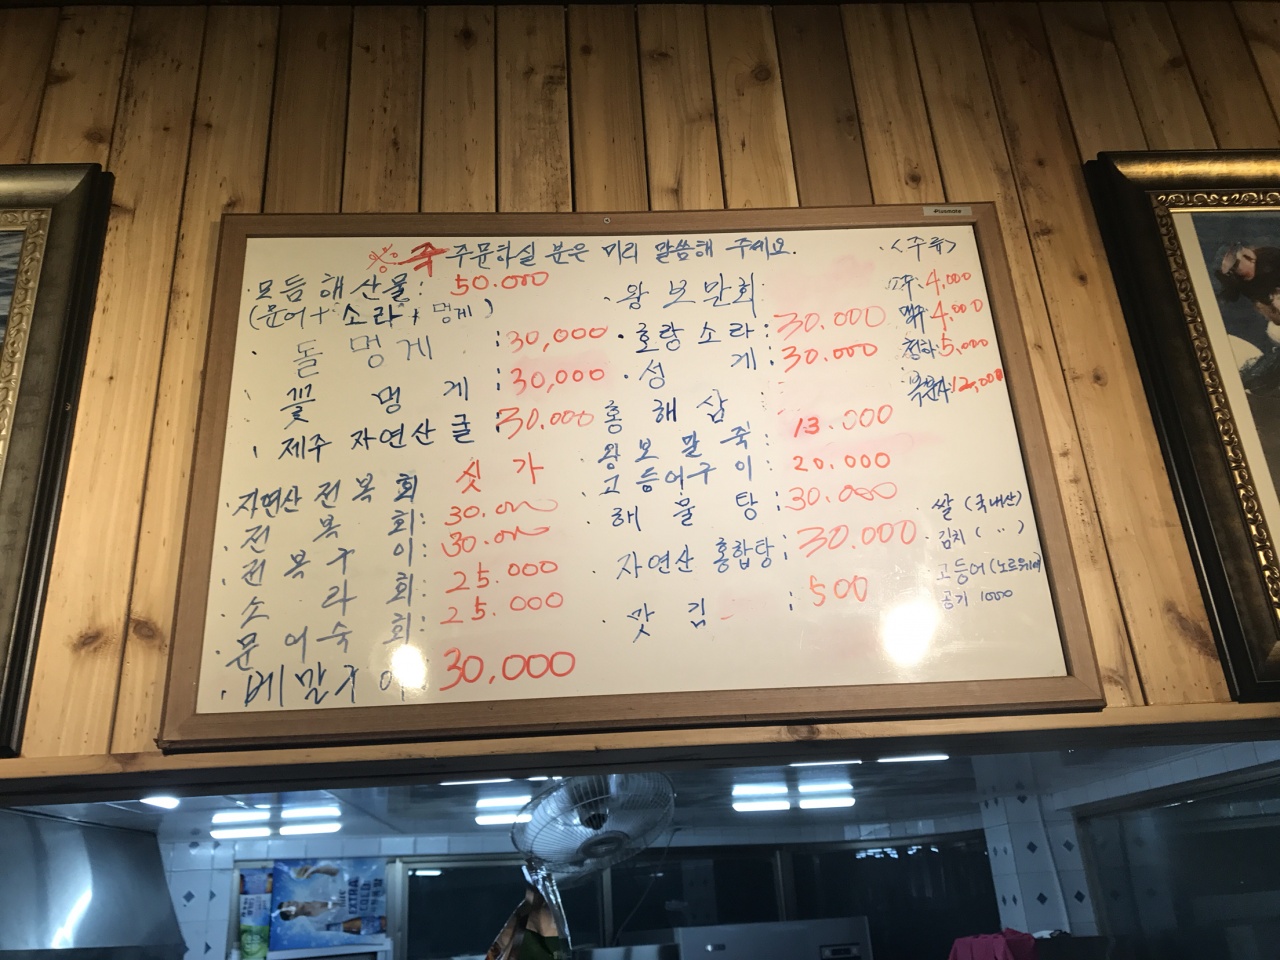 ※ 주문하실 분은 미리 말씀해 주세요.
· 모듬해산물: 50.000
(문어 + 소라 + 멍게)
· 돌 멍게 : 30,000
· 꽃 멍 게 : 30,000
· 제주 자연산 굴 : 30.000
· 자연산 전복회 싯가
· 전 복 회: 30.000
· 전 복 구 이: 30.000
· 소 라 회: 25.000
· 문 어 숙 회: 25.000
· 베말구이 30,000
· 왕 보말회
· 호랑 소라: 30.000
· 성 게: 30.000
· 홍 해 삼 :
· 왕 보 말 죽: 13.000
· 고등어구이: 20.000
· 해 물 탕: 30.000
· 자연산 홍합탕: 30.000
· 맛 김 : 500
· <주류>
소주: 4,000
맥주: 4,000
청하: 5,000
12,000
· 쌀 (국내산)
· 김치 ( 〃 )
고등어 (노르웨이)
공기 1000
EXTRA
COLD